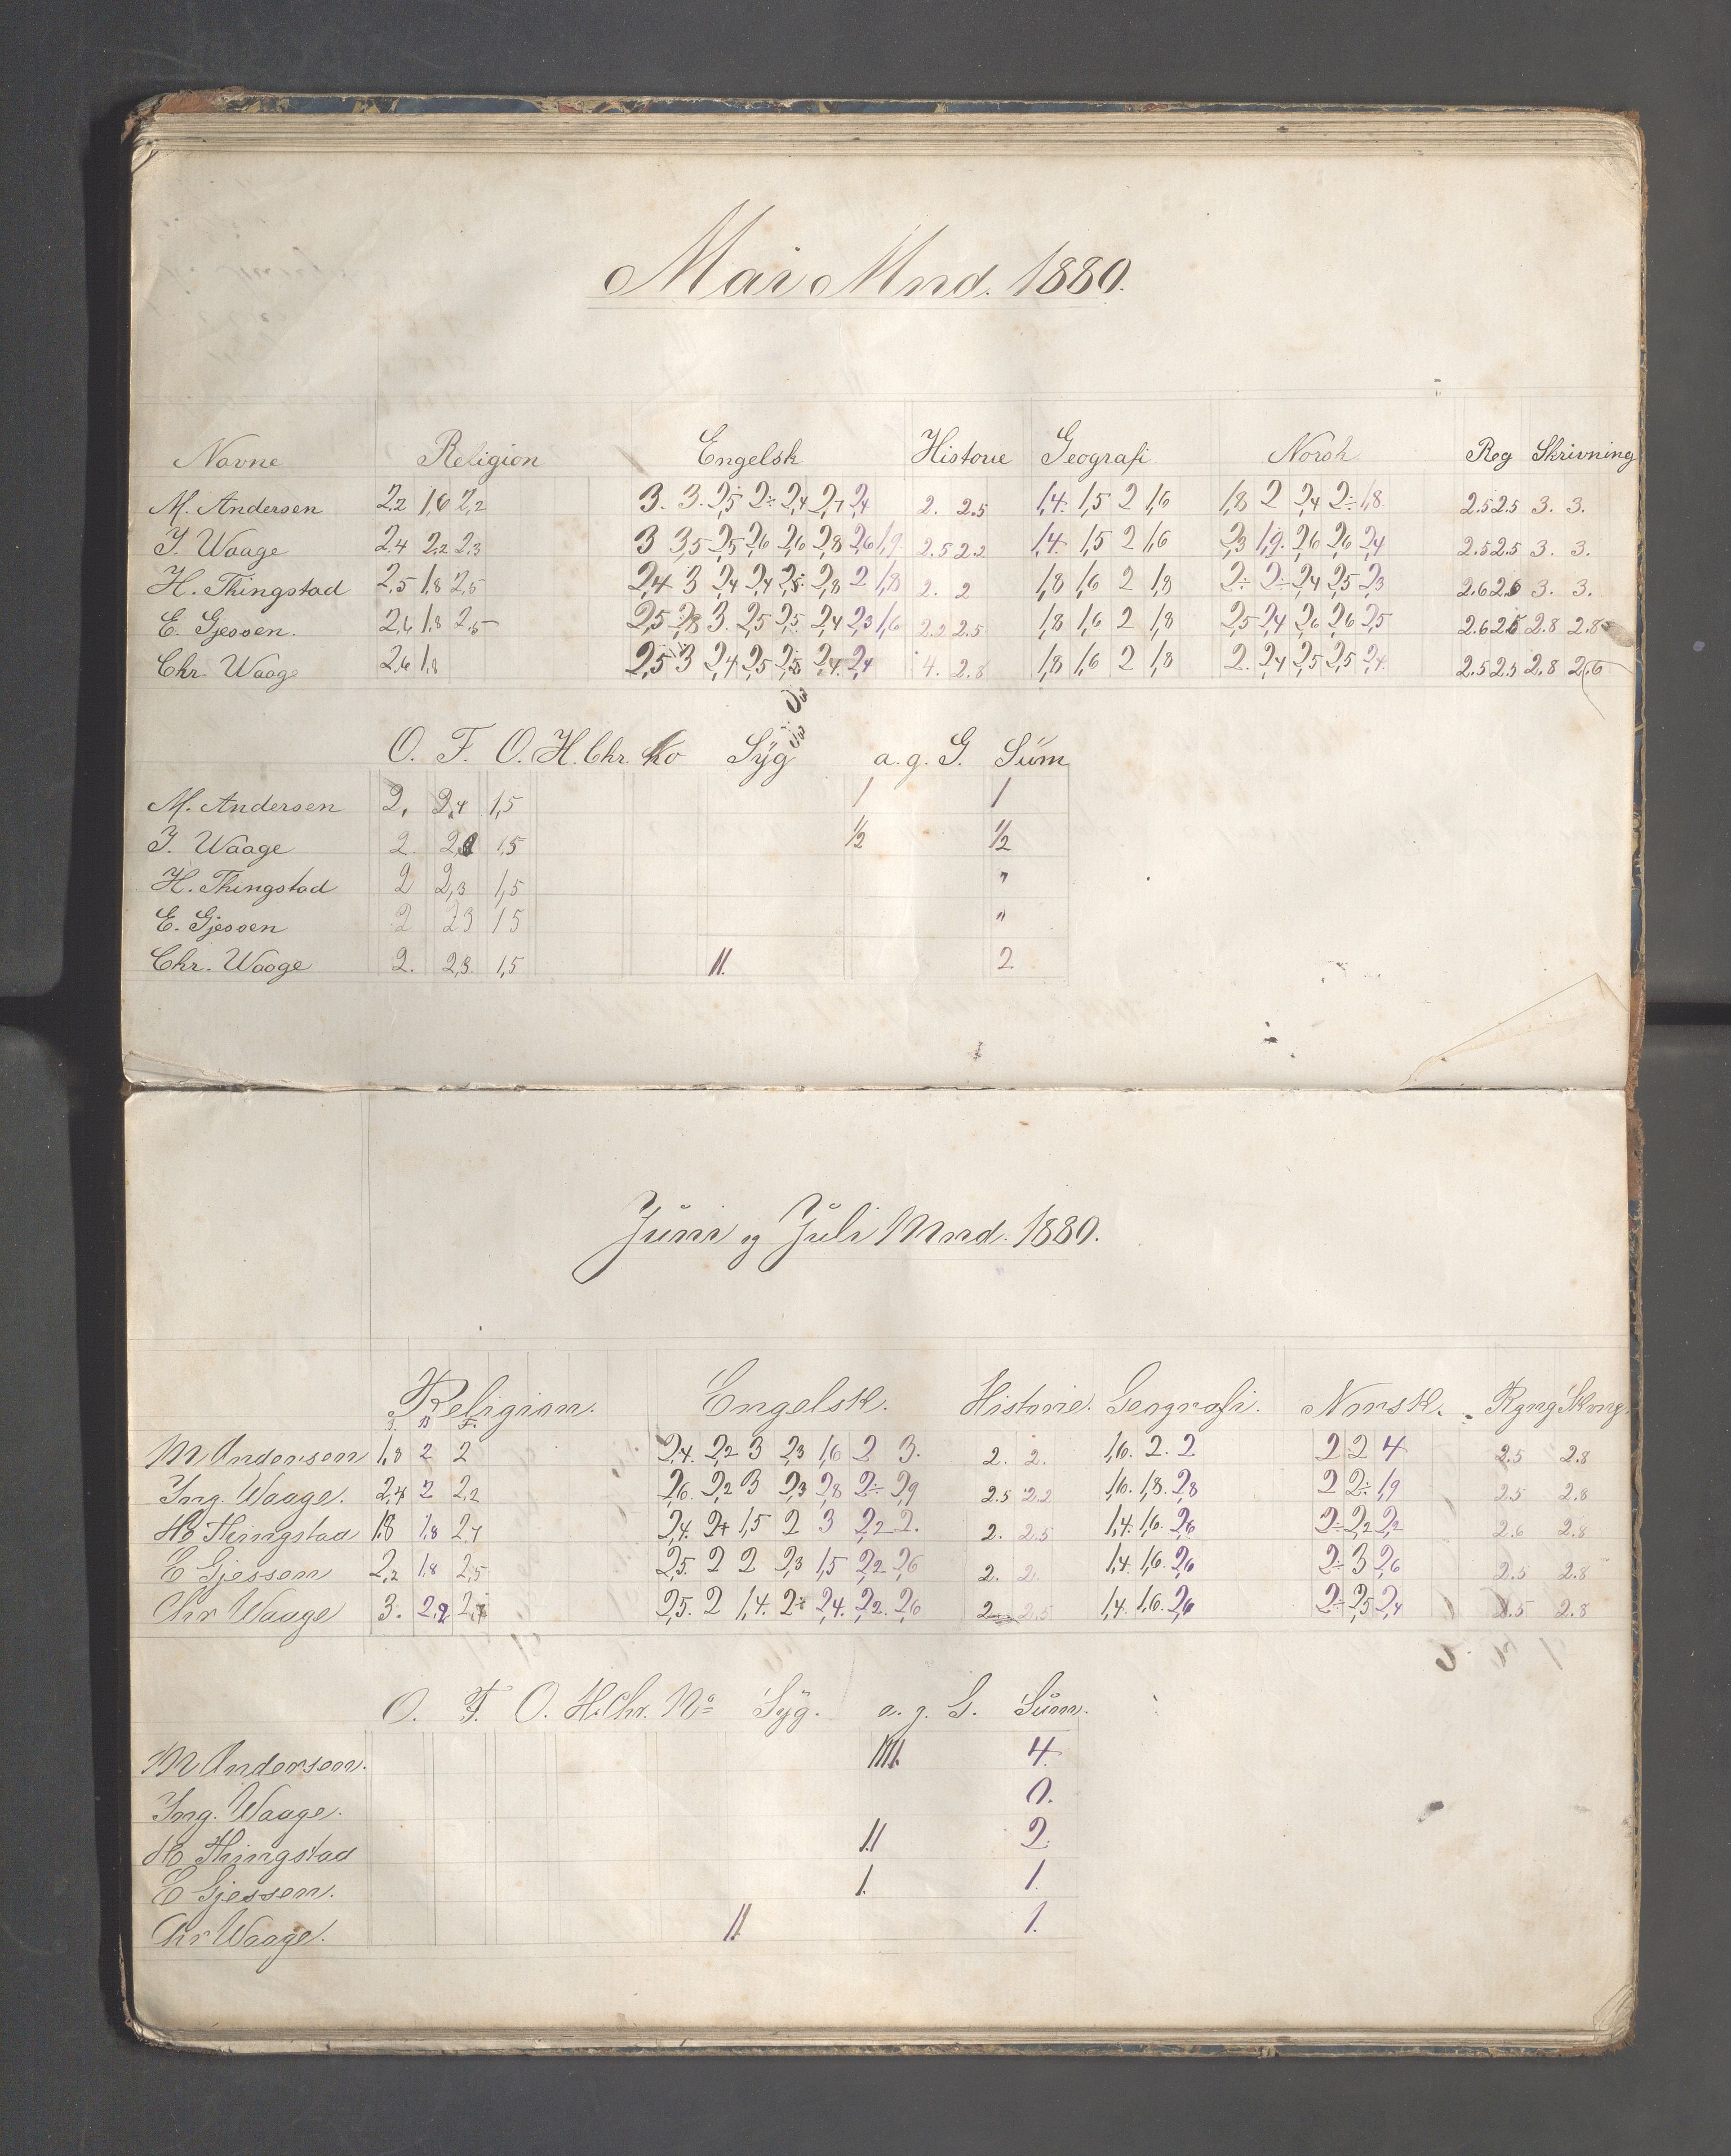 Mai Mnd. 1880.
Navne Religion Engelsk Historie Geografi Norsk Reg Skrivning
M. Andersen 2,2 1,6 2,2 3. 3. 2,5 2÷ 2,4 2,7 2,4 2. 2.5 1,4. 1,5 2 1,6 1,8 2 2,4 2÷ 1,8 2.5 2.5 3. 3.
J. Waage 2.4 2,2 2,3 3 3,5 2,5 2,6 2,6 2,8 2,6 1,9. 2.5 2.2 1,4. 1,5 2 1,6 2,3 1,9. 2,6 2,6 2,4 2.5 2.5 3. 3.
H. Thingstad 2,5 1,8 2,5 2,4 3 2,4 2,4 2,5. 2,8 2 1,8 2. 2 1,8 1,6 2 1,8 2÷ 2÷ 2,4 2,5 2,3 2.6 2.6 3. 3.
E. Gjessen. 2,6 1,8 2,5 2,5 2,8 3. 2,5 2,5 2,4 2,3 1,6 2.2 2.5 1,8 1,6 2 1,8 2,5 2,4 2,6 2,6 2,5 2.6 2.5 2.8 2.8
Chr. Waage 2,6 1,8 2,5 3 2,4 2,5 2,5 2,4. 2,4 4. 2.8 1,8 1,6 2 1,8 2. 2,4 2,5 2,5 2,4. 2.5 2.5 2.8 2.6
O. F. O. H. Chr. No Syg a. g. G. Sum
M. Andersen 2. 2,4 1,5 1 1
J. Waage 2. 1,5 1/2 1/2
H. Thingstad 2 2,3 1,5 "
E. Gjessen 2 2 3 1 5 "
Chr. Waage 2. 2,3. 1,5 11. 2
Juni og Juli Mnd. 1880.
Religion. Engelsk. Historie. Geografi. Norsk. Rgng Skvng.
M Andersen 1,8 2 2 2,4. 2,2 3 2,3 1,6 2 3. 2. 2. 1,6. 2. 2 2 2 4 2.5 2.8
Ing. Waage. 2,4 2 2,2 2,6. 2,2 3 2,3 2,8 2÷ 2,9 2.5 2.2 1,6. 1,8. 2,8 2 2÷ 1,9 2.5 2.8
H Thingstad 1,8 1,8 2,7 2,4. 1,5 2 3 2,2 2. 2. 2.5 1,4. 1,6. 2,6 2÷ 2,2 2,2 2.6 2.8
E Gjessen 2,2 1,8 2,5 2,5. 2 2 2,3 1,5 2,2 2,6 2. 2. 1,4. 1,6. 2,6 2÷ 3 2,6 2.5 2.8
Chr Waage 3. 2,2 2,5. 2 1,4. 2÷ 2,4. 2,2. 2,6 2 2.5 1,4. 1,6. 2,6 2÷ 2,5 2,4 2.5 2.8
O. F. O. H. Chr. No Syg. a. g. G. Sum.
M Andersen. 1111. 4.
Ing. Waage. 0.
H Thingstad 11 2.
E Gjessen. 1. 1.
Chr Waage. 11. 1.